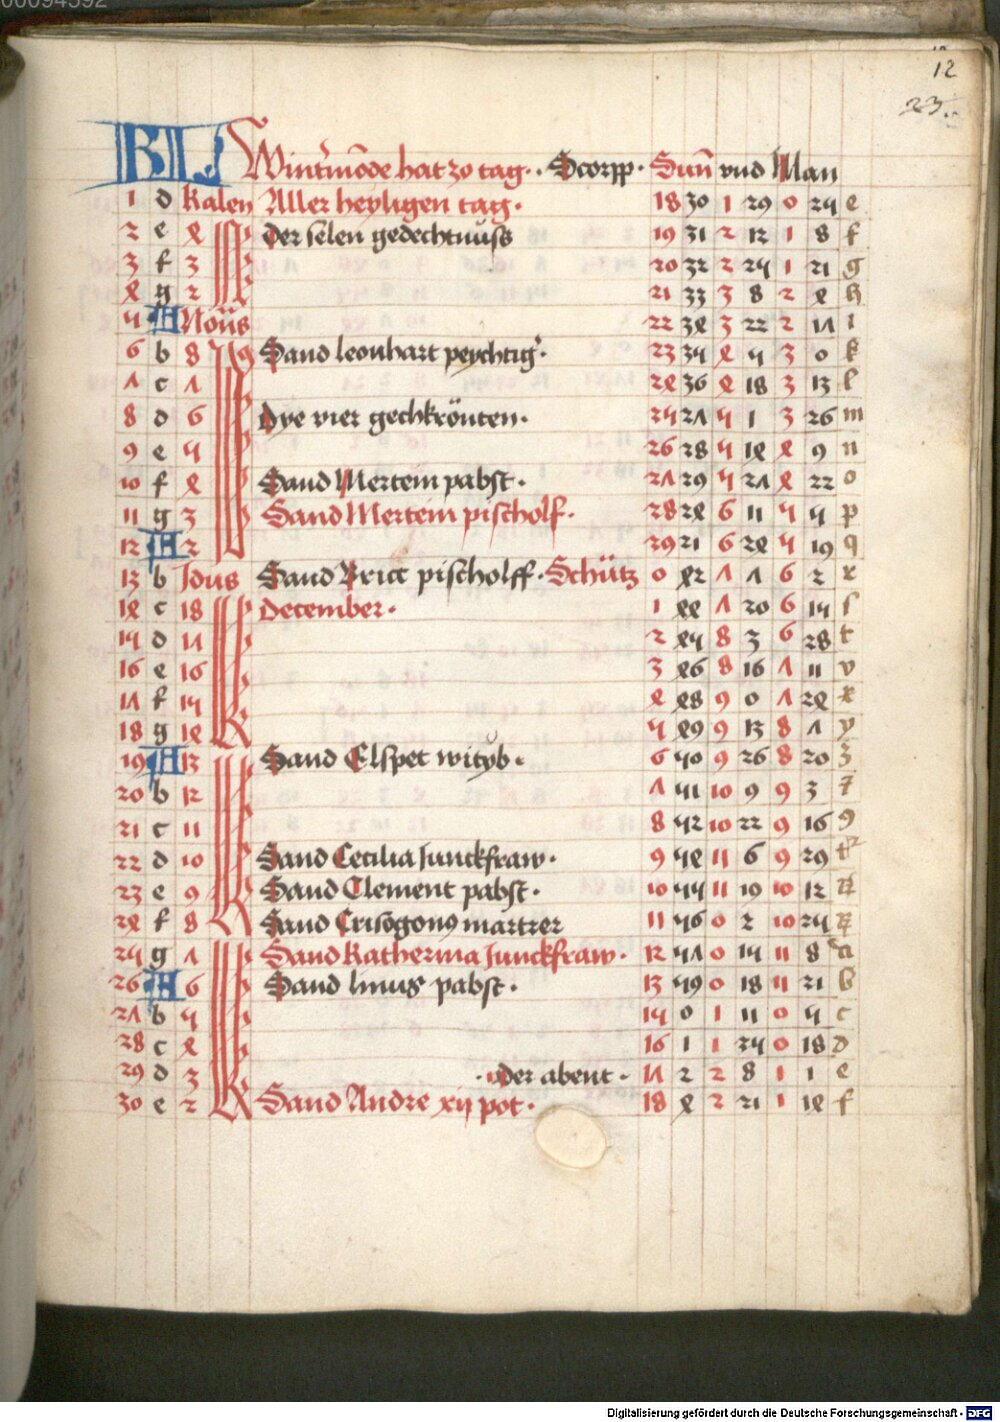 12
23
KL Wint'mōde hat 30 tag · Scorpp · Sun̄ vnd Man
1 d Kalen Aller heyligen tag · 18 30 1 29 0 25 e
2 e 4 der selen gedechtnuss 19 31 2 12 1 8 f
3 f 3 20 32 2 25 1 21 g
4 g 2 21 33 3 8 2 4 h
5 A Noīs 22 34 3 22 2 17 i
6 b 8 Sand leonhart peychtig' · 23 35 4 5 3 0 k
7 c 7 24 36 4 18 3 13 l
8 d 6 Dye vier gechkrönten · 25 27 5 1 3 26 m
9 e 5 26 28 5 14 4 9 n
10 f 4 Sand Mertein pabst · 27 29 5 27 4 22 o
11 g 3 Sand Mertein pischolf · 28 24 6 11 5 5 p
12 A 2 29 21 6 24 5 19 q
13 b Idus Sand Brict pischolff · Schütz 0 42 7 7 6 2 r
14 c 18 December · 1 44 7 20 6 15 s
15 d 17 2 45 8 3 6 28 t
16 e 16 3 46 8 16 7 11 v
17 f 15 4 48 9 0 7 24 x
18 g 14 5 49 9 13 8 7 y
19 A 13 Sand Elspet wityb · 6 50 9 26 8 20 z
20 b 12 7 51 10 9 9 3 7
21 c 11 8 52 10 22 9 16 9
22 d 10 Sand Cecilia Junckfraw · 9 54 11 6 9 29
23 e 9 Sand Clement pabst · 10 55 11 19 10 12
24 f 8 Sand Crisogonꝰ martrer 11 56 0 2 10 25
25 g 7 Sand Katherina Junckfraw · 12 57 0 15 11 8 a
26 A 6 Sand linus pabst · 13 59 0 18 11 21 b
27 b 5 15 0 1 11 0 5 c
28 c 4 16 1 1 25 0 18 d
29 d 3 · der abent · 17 2 2 8 1 1 e
30 e 2 Sand Andre xij pot · 18 4 2 21 1 14 f
Digitalisierung gefördert durch die Deutsche Forschungsgemeinschaft - DFG